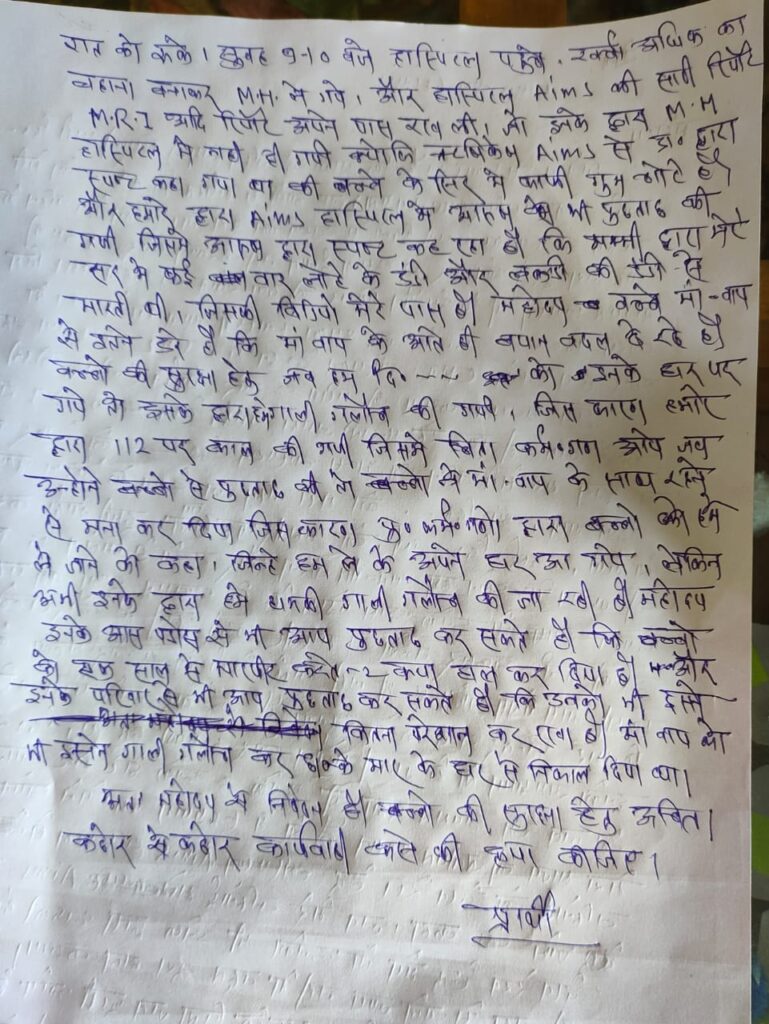 रात को रुके। सुबह 9-10 बजे हास्पिटल पहुंचे, खर्चा अधिक का
बहाना बनाकर M.H. मे गये, और हास्पिटल AiMS की सारी रिपोर्ट
M.R.I आदि रिपोर्ट अपने पास रख ली, जो इनके द्वारा M.H
हास्पिटल मे नही दी गयी क्योकि ऋषिकेश AiMS से डा० द्वारा
स्पष्ट कहा गया था की बच्चे के सिर मे काफी गुम चोटे है।
और हमारे द्वारा AiMS हास्पिटल मे भी पुछताछ की
गयी जिसमे द्वारा स्पष्ट कह रहा है कि मम्मी द्वारा मेरे
सर मे कई बार लोहे के डंडी और लकडी की डंडी से
मारती थी, जिसकी विडियो मेरे पास है। महोदय बच्चे मां-बाप
से इतने डरे है कि मां बाप के आते ही बयान बदल दे रहे है।
बच्चो की सुरक्षा हेतु जब हम दि० --- को इनके घर पर
गये तो इसके द्वारा हमे गाली गलौच की गयी, जिस कारण हमारे
द्वारा 112 पर काल की गयी जिसमे चिता कर्म०गण आये जब
उन्होने बच्चो से पुछताछ की तो बच्चो ने मां-बाप के साथ रहने
से मना कर दिया जिस कारण पु० कर्म०गणो द्वारा बच्चो को हमे
ले जाने को कहा, जिन्हे हम ले के अपने घर आ गये, लेकिन
अभी इनके द्वारा हमे धमकी गाली गलौच की जा रही है। महोदय
इनके आस पडोस से भी आप पुछताछ कर सकते है कि बच्चो
को एक साल से मारपीट करते-2 क्या हाल कर दिया है। और
इनके परिवार से भी आप पुछताछ कर सकते है कि उनको भी इसने
कितना परेशान कर रखा है। मां बाप को
भी इसने गाली गलौच कर धक्के मार के घर से निकाल दिया था।
अतः महोदय से निवेदन है। बच्चो की सुरक्षा हेतु उचित।
कठोर से कठोर कार्यवाही करने की कृपा कीजिए।
प्रार्थी